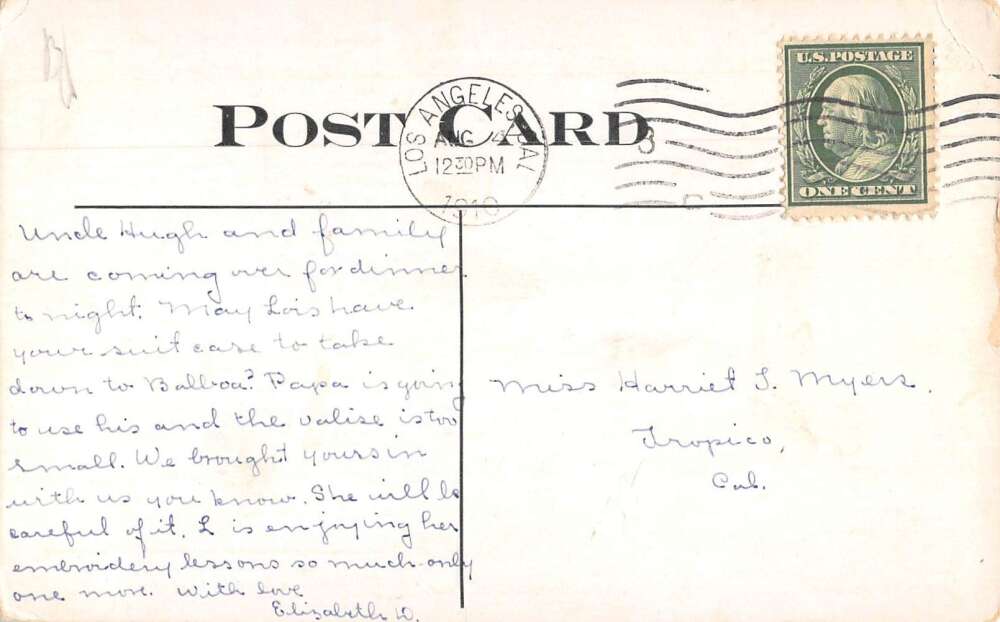 U.S. POSTAGE
ONE CENT
POST CARD
LOS ANGELES, CAL
AUG 4
12 30 PM
1910
3
Uncle Hugh and family
are coming over for dinner
to night. May Lois have
your suit case to take
down to Balboa? Papa is going
to use his and the valise is too
small. We brought yours in
with us you know. She will be
careful of it. L is enjoying her
embroidery lessons so much – only
one more. With love
Elizabeth W.
Miss Harriet T. Myers.
Tropico,
Cal.